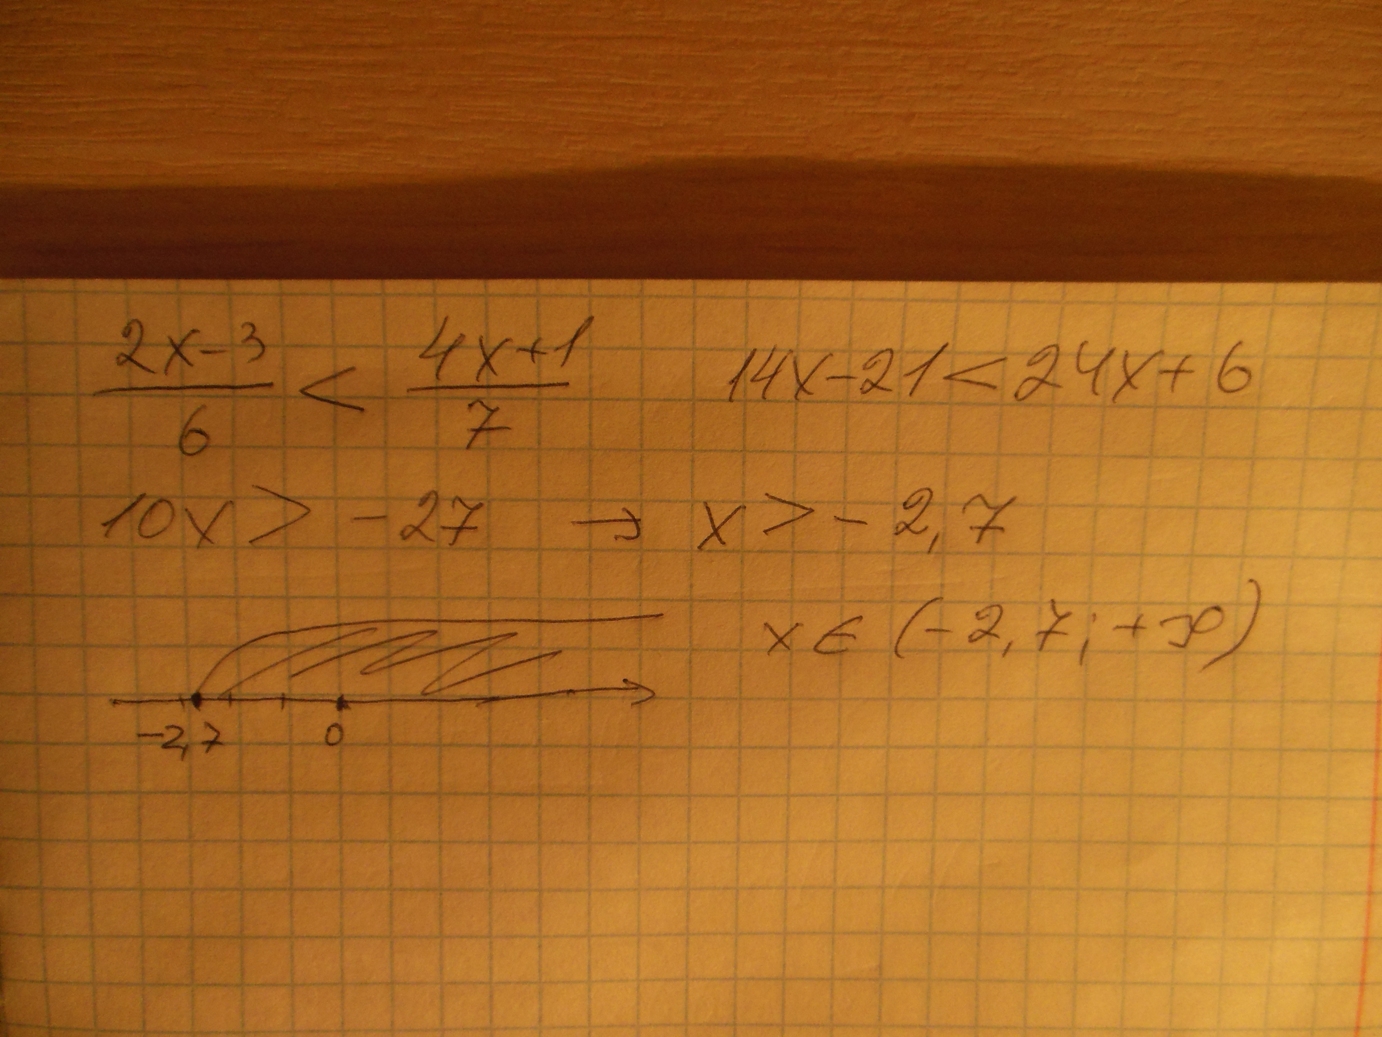 (2x-3)/6 < (4x+1)/7 14x-21<24x+6
10x > -27 → x > -2,7
x ∈ (-2,7; +∞)
-2,7 0